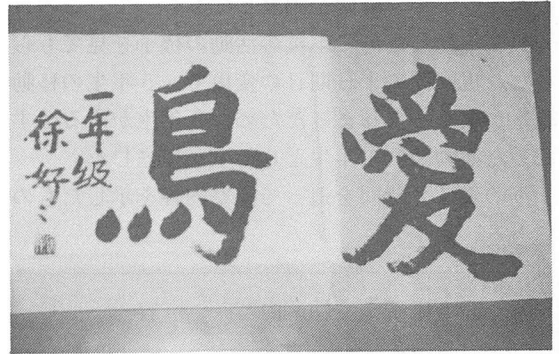 愛鳥
一年级
徐好〻